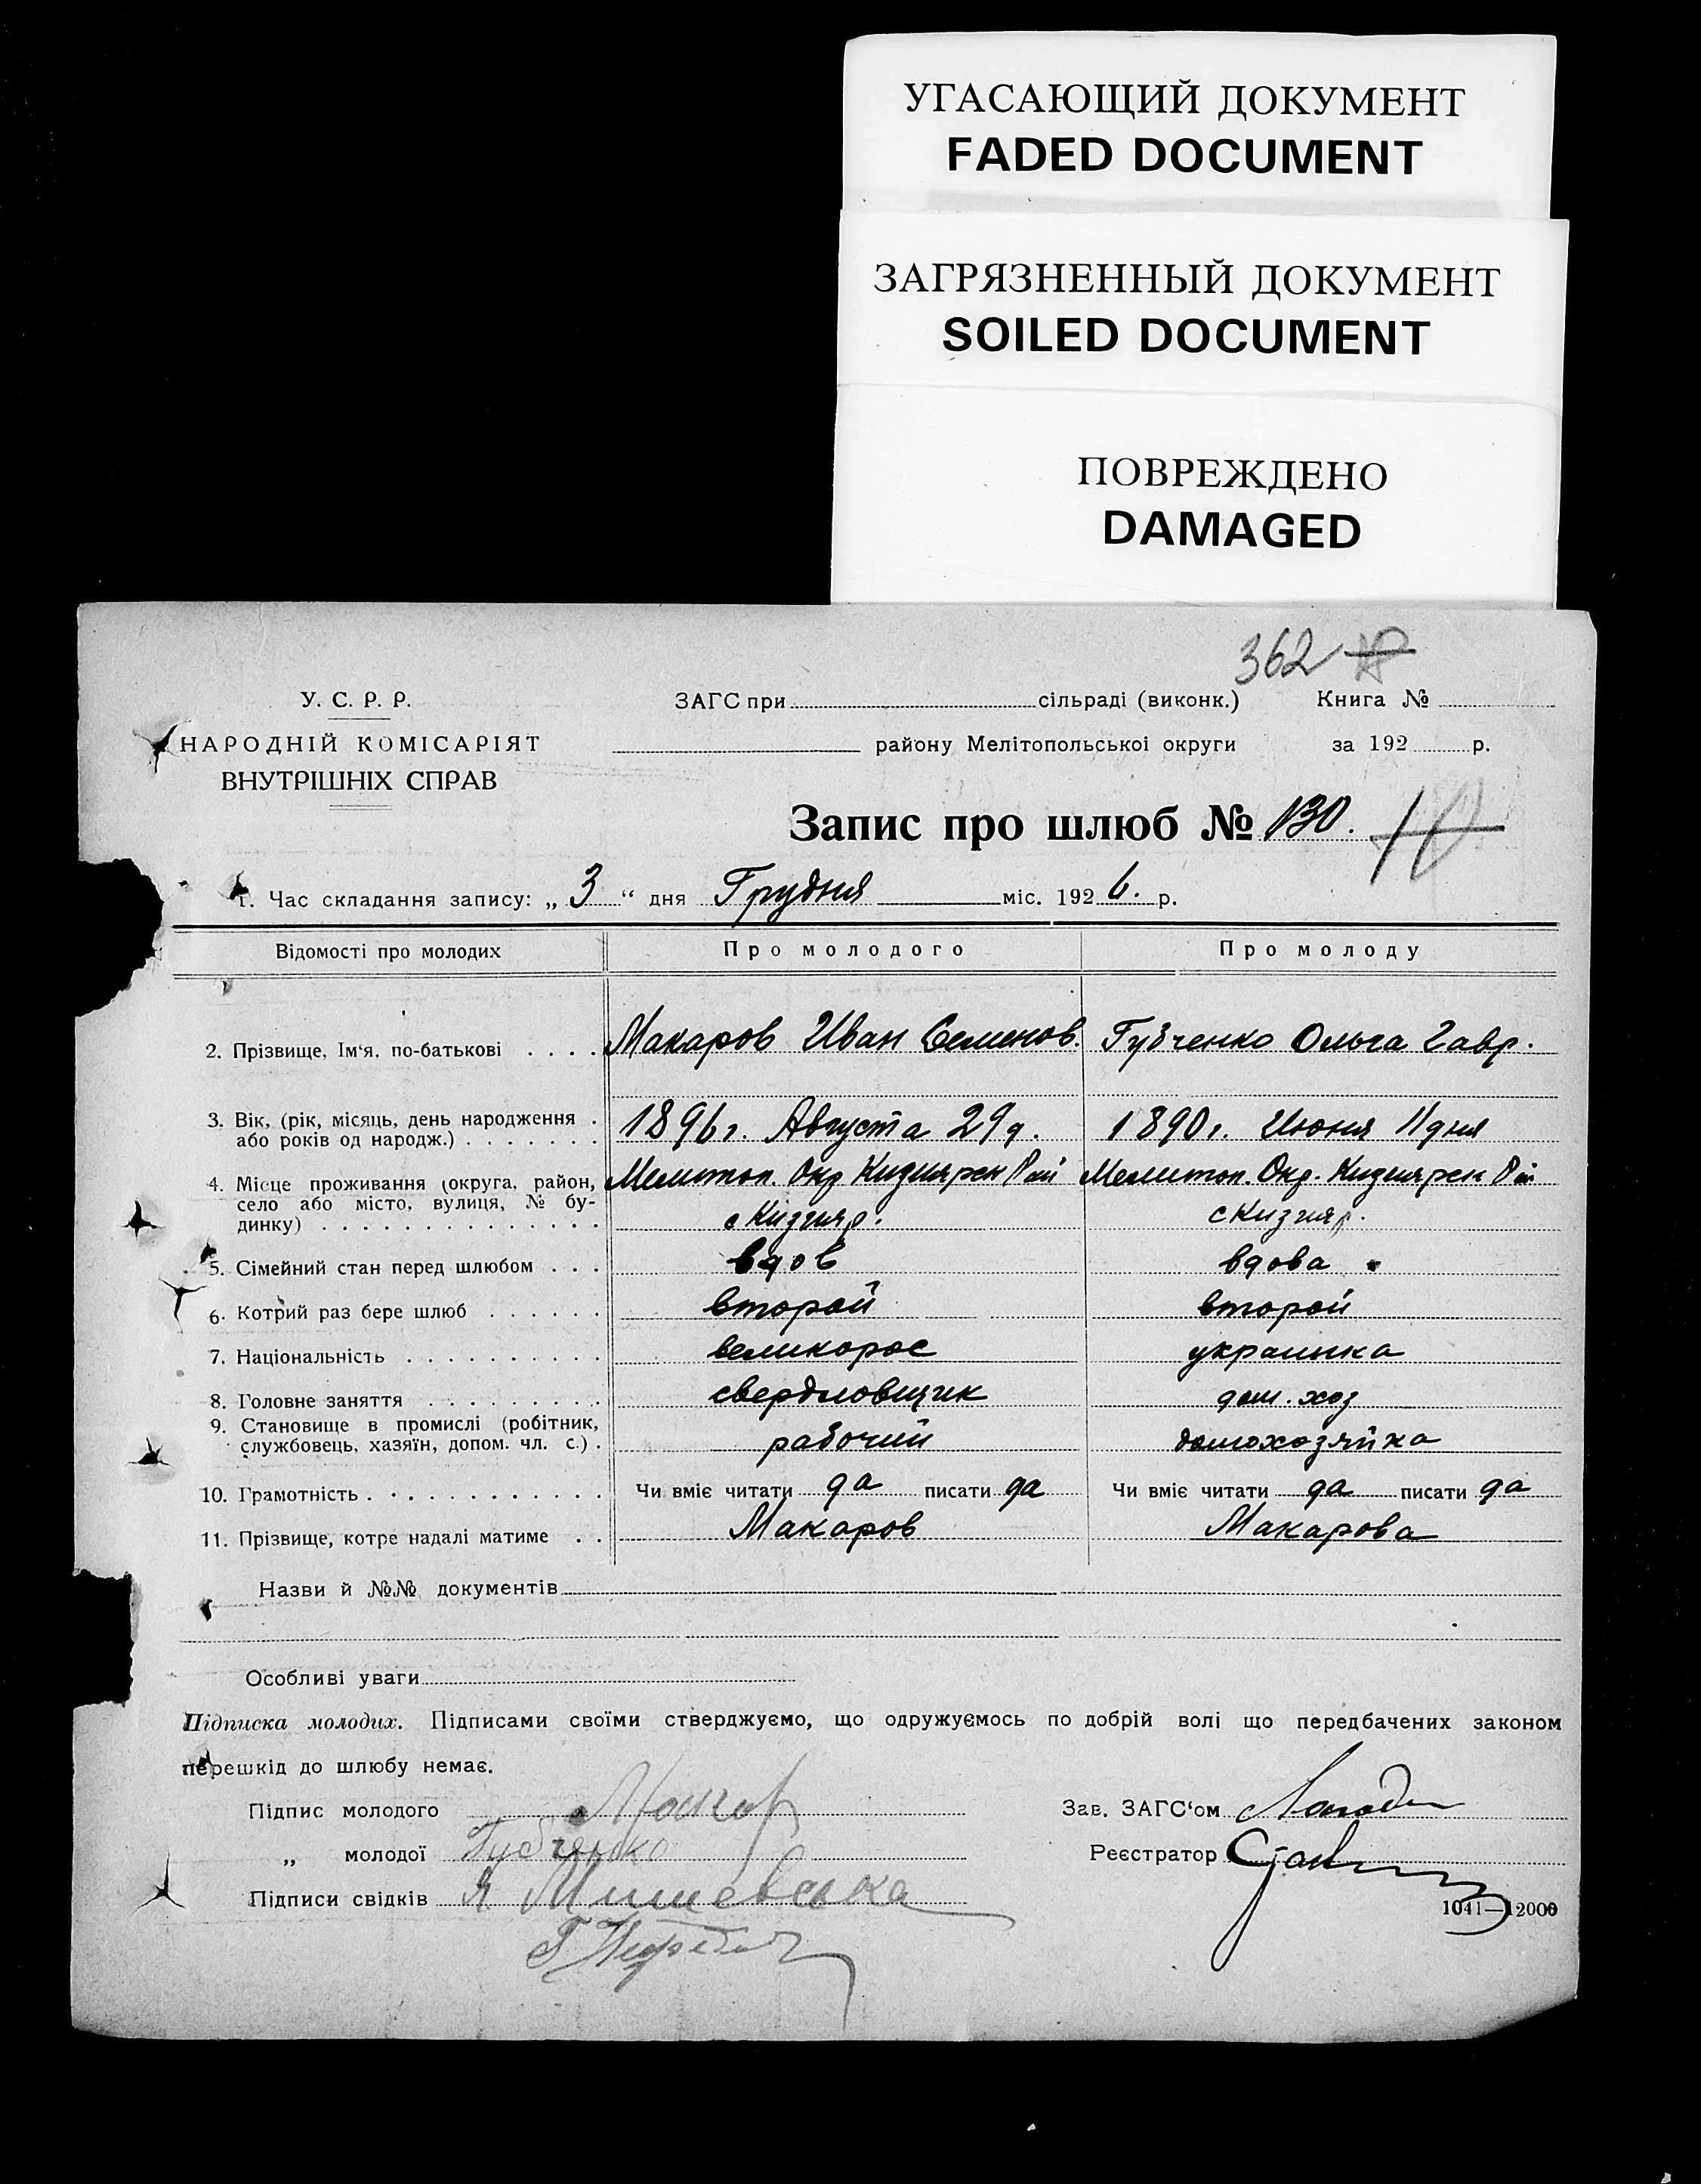 УГАСАЮЩИЙ ДОКУМЕНТ
FADED DOCUMENT
ЗАГРЯЗНЕННЫЙ ДОКУМЕНТ
SOILED DOCUMENT
ПОВРЕЖДЕНО
DAMAGED
362
У. С. Р. Р.
НАРОДНІЙ КОМІСАРІЯТ
ВНУТРІШНІХ СПРАВ
ЗАГС при сільраді (виконк.) Книга №
району Мелітопольської округи за 192 р.
Запис про шлюб № 130.
1. Час складання запису: „ 3 “ дня Грудня міс. 192 6. р.
Відомості про молодих Про молодого Про молоду
2. Прізвище, Ім'я, по-батькові . . . . Макаров Иван Семенов. Губченко Ольга Гавр.
3. Вік, (рік, місяць, день народження . 1896 г. Августа 29 д. 1890 г. Июня 11 дня
або років од народж.) . . . . . . .
4. Місце проживання (округа, район, Мелитоп. Окр Кизиярск Рай Мелитоп. Окр. Кизиярск Рай
село або місто, вулиця, № бу- с Кизияр. с Кизияр.
динку) . . . . . . . . . . . . . .
5. Сімейний стан перед шлюбом . . . вдов вдова
6. Котрий раз бере шлюб . . . . . . второй второй
7. Національність . . . . . . . . . . великорос украинка
8. Головне заняття . . . . . . . . . свердловщик дом. хоз
9. Становище в промислі (робітник,
службовець, хазяїн, допом. чл. с.) . рабочий домохозяйка
10. Грамотність . . . . . . . . . . . . Чи вміє читати да писати да Чи вміє читати да писати да
11. Прізвище, котре надалі матиме . . Макаров Макарова
Назви й №№ документів
Особливі уваги
Підписка молодих. Підписами своїми стверджуємо, що одружуємось по добрій волі що передбачених законом
перешкід до шлюбу немає.
Підпис молодого Макар Зав. ЗАГС'ом
„ молодої Губченко Реєстратор
Підписи свідків
1041—12000